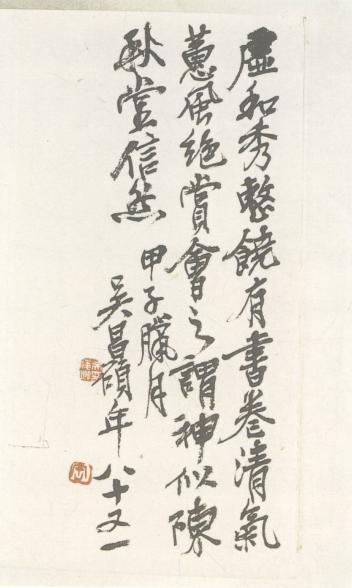 虛和秀整饒有書卷清氣
蕙風絶賞會之謂神似陳
秋堂信然
甲子臘月
吳昌碩年八十又一